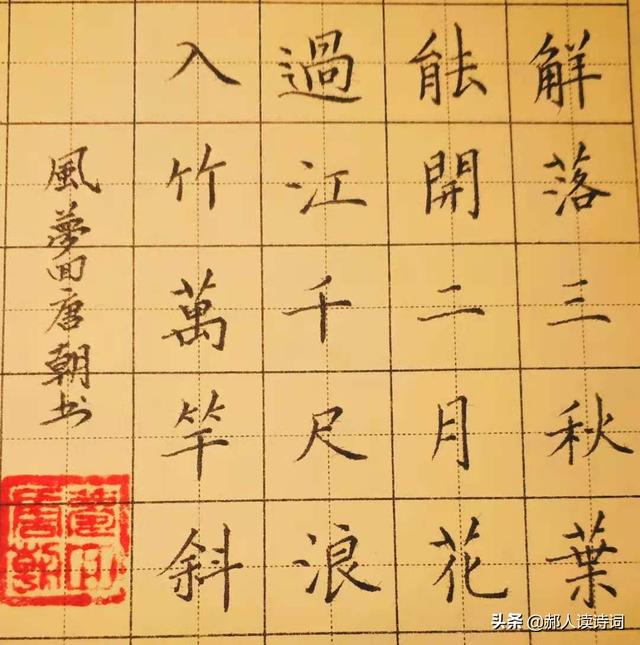 解落三秋葉
能開二月花
過江千尺浪
入竹萬竿斜
風 夢回唐朝书
夢回唐朝
头条 @郝人读诗词